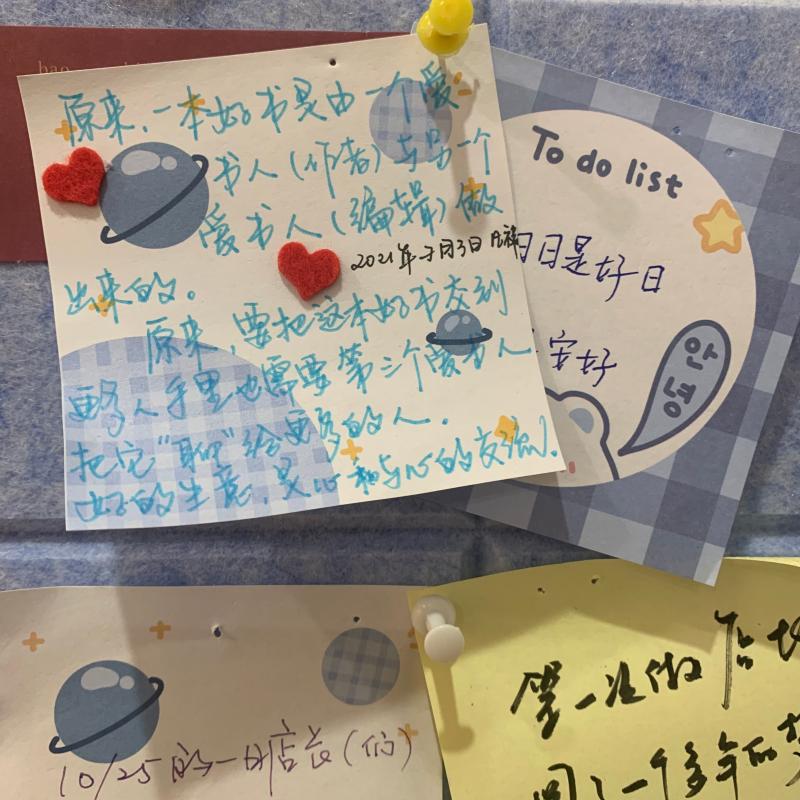 原来,一本好书是由一个爱
书人(作者)与另一个
爱书人(编辑)做
出来的。
2021年
原来,要把这本好书交到
更多人手里也需要第三个爱书人
把它“聊”给更多的人.
好的生意,是心和与心的交流.
To do list
日日是好日
安好
안녕
10/25的一日店长(们)
第一次做店
圆了一个多年的梦